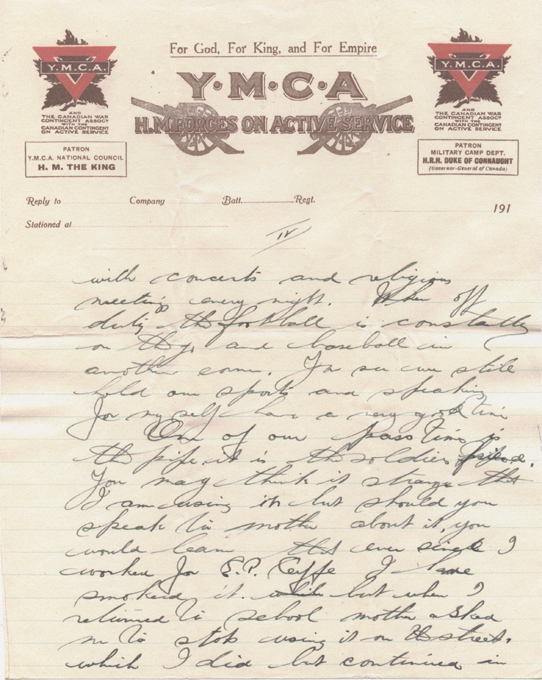 For God, For King, and For Empire
Y·M·C·A
H.M. FORCES ON ACTIVE SERVICE
Y.M.C.A.
AND
THE CANADIAN WAR
CONTINGENT ASSOCN
WITH THE
CANADIAN CONTINGENT
ON ACTIVE SERVICE
PATRON
Y.M.C.A. NATIONAL COUNCIL
H. M. THE KING
Y.M.C.A.
AND
THE CANADIAN WAR
CONTINGENT ASSOCT
WITH THE
CANADIAN CONTINGENT
ON ACTIVE SERVICE
PATRON
MILITARY CAMP DEPT.
H.R.H. DUKE OF CONNAUGHT
(Governor-General of Canada)
Reply to Company Batt. Regt. 191
Stationed at
IV
with concerts and religious
meetings every night. When off
duty the football is constantly
on the go and baseball in
another corner. You see we still
hold our sports and speaking
for myself have a very good time
One of our pass time is
the pipe, it is the soldiers
You may think it strange that
I am using it but should you
speak to mother about it, you
would learn that ever since I
worked for E.P. I have
smoked it. but when I
returned to school mother asked
me to stop using it on the street.
which I did but continued in